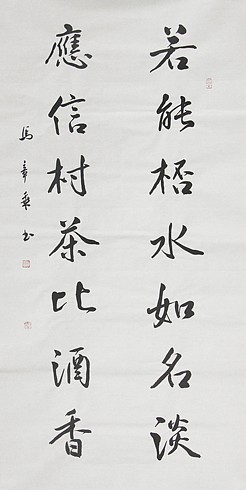 若能桮水如名淡
應信村茶比酒香
馬章乘书